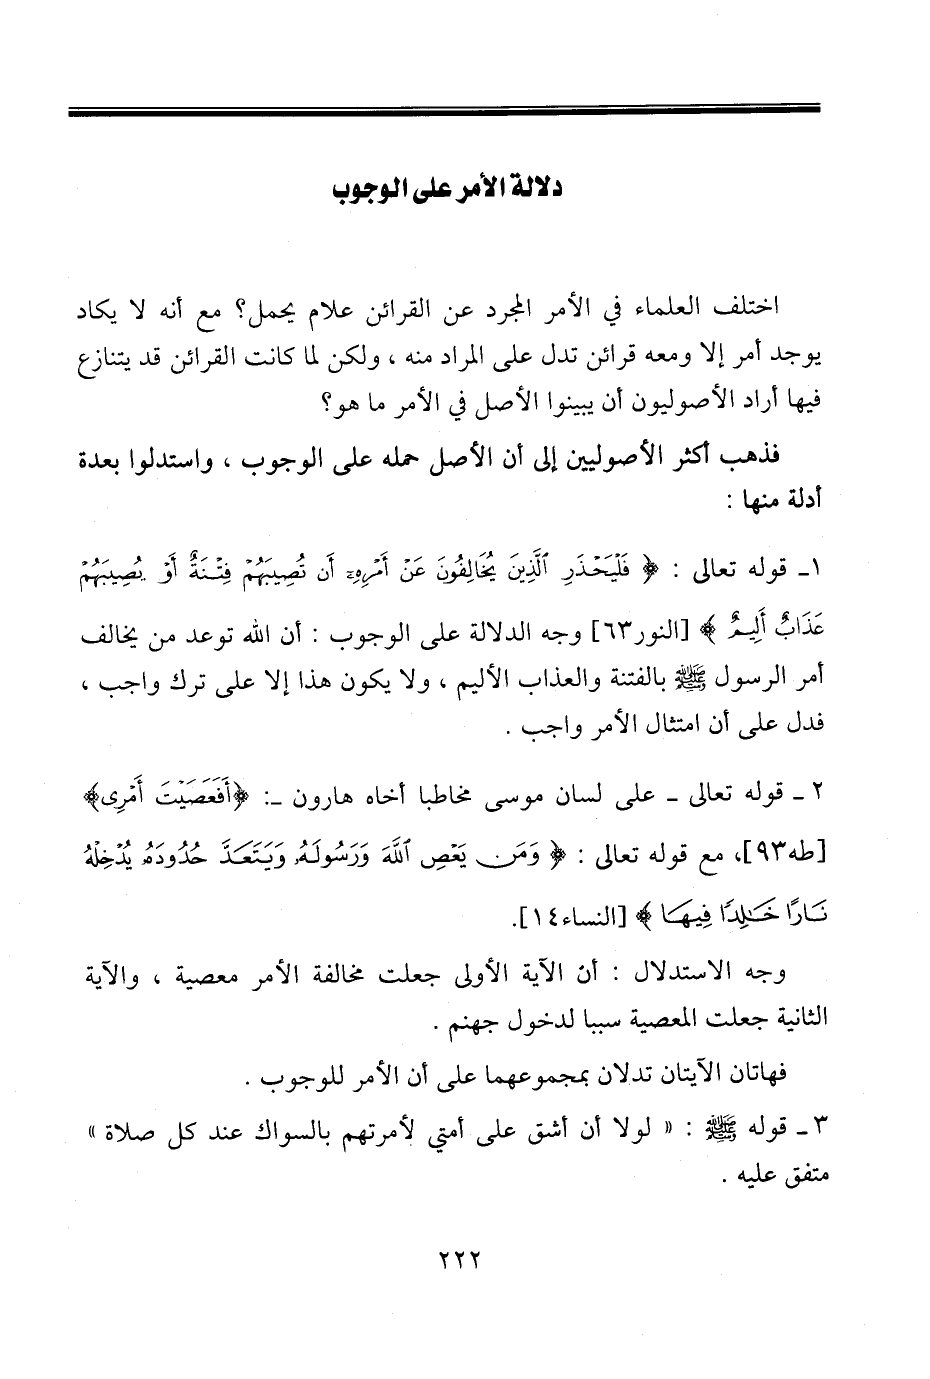 دلالة الأمر على الوجوب
اختلف العلماء في الأمر المجرد عن القرائن علام يحمل؟ مع أنه لا يكاد
يوجد أمر إلا ومعه قرائن تدل على المراد منه ، ولكن لما كانت القرائن قد يتنازع
فيها أراد الأصوليون أن يبينوا الأصل في الأمر ما هو؟
فذهب أكثر الأصوليين إلى أن الأصل حمله على الوجوب ، واستدلوا بعدة
أدلة منها :
١ـ قوله تعالى : ﴿ فَلْيَحْذَرِ ٱلَّذِينَ يُخَالِفُونَ عَنْ أَمْرِهِۦٓ أَن تُصِيبَهُمْ فِتْنَةٌ أَوْ يُصِيبَهُمْ
عَذَابٌ أَلِيمٌ ﴾ [النور٦٣] وجه الدلالة على الوجوب : أن الله توعد من يخالف
أمر الرسول ﷺ بالفتنة والعذاب الأليم ، ولا يكون هذا إلا على ترك واجب ،
فدل على أن امتثال الأمر واجب .
٢ ـ قوله تعالى ـ على لسان موسى مخاطبا أخاه هارون ـ: ﴿أَفَعَصَيْتَ أَمْرِى﴾
[طه٩٣]، مع قوله تعالى : ﴿ وَمَن يَعْصِ ٱللَّهَ وَرَسُولَهُۥ وَيَتَعَدَّ حُدُودَهُۥ يُدْخِلْهُ
نَارًا خَـٰلِدًا فِيهَا ﴾ [النساء١٤].
وجه الاستدلال : أن الآية الأولى جعلت مخالفة الأمر معصية ، والآية
الثانية جعلت المعصية سببا لدخول جهنم .
فهاتان الآيتان تدلان بمجموعهما على أن الأمر للوجوب .
٣ ـ قوله ﷺ : « لولا أن أشق على أمتي لأمرتهم بالسواك عند كل صلاة »
متفق عليه .
٢٢٢